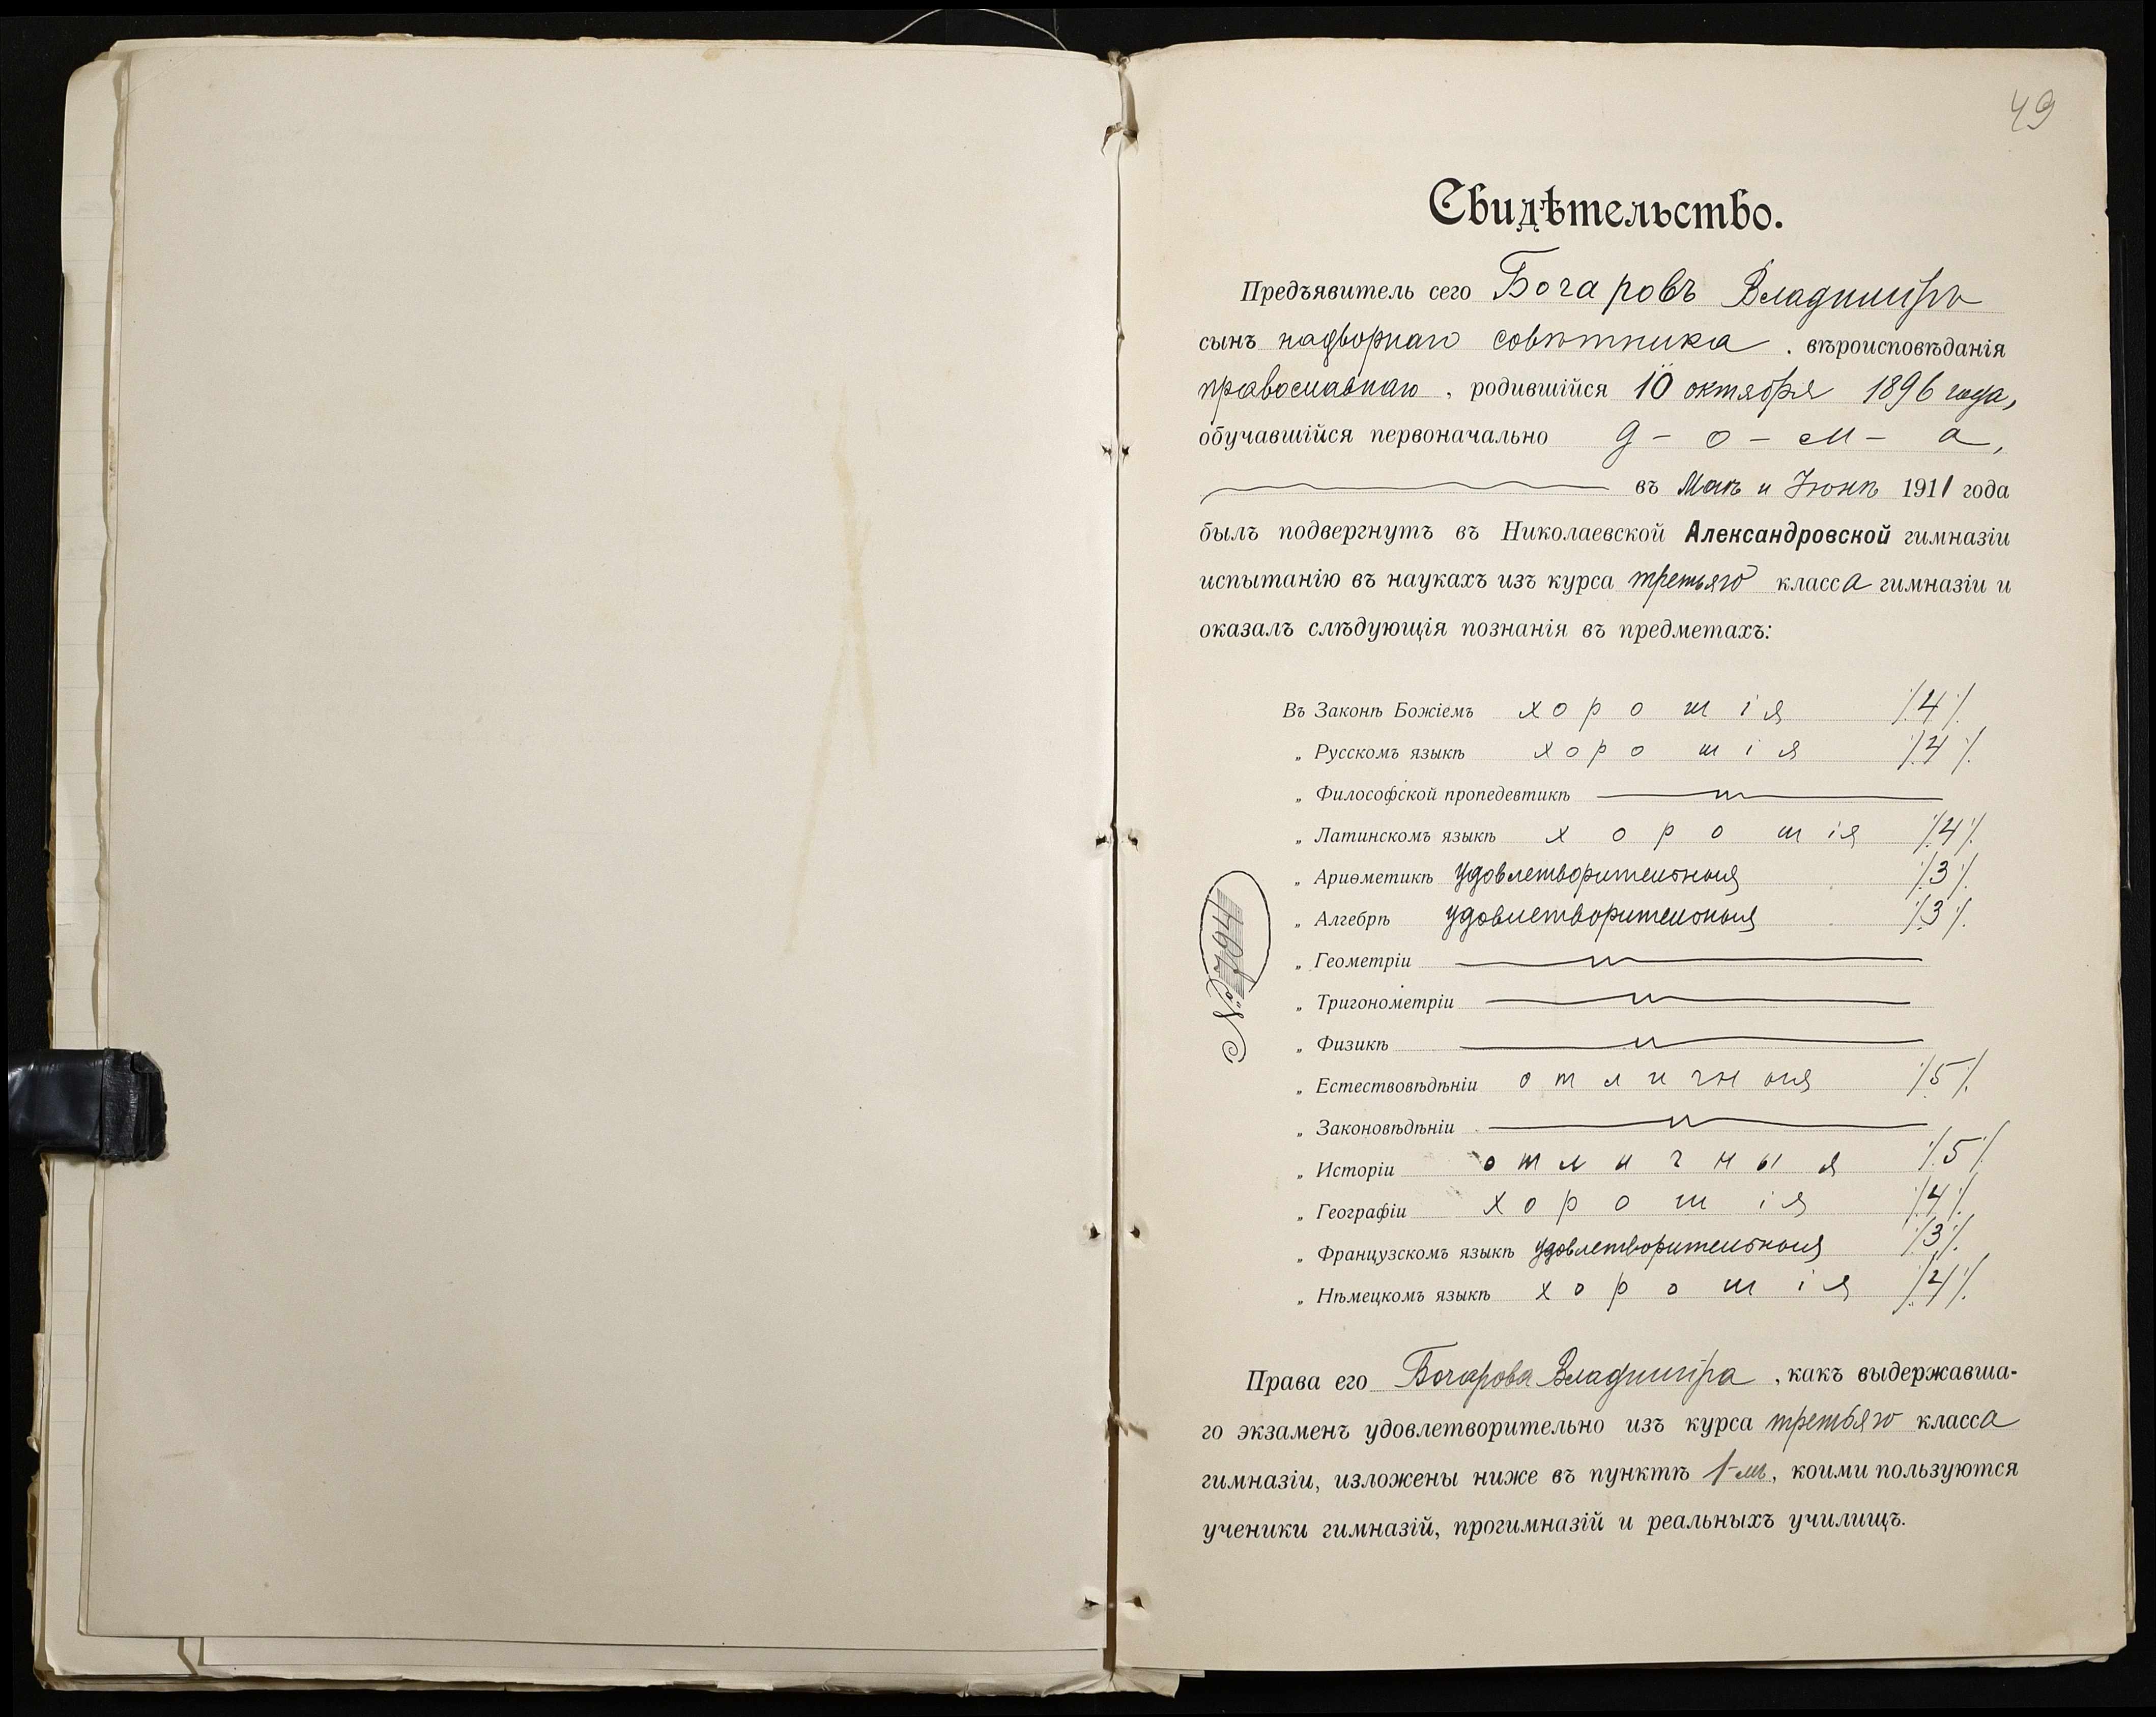 49
Свидѣтельство.
Предъявитель сего Бочаровъ Владимиръ
сынъ надворнаго совѣтника . вѣроисповѣданія
православнаго , родившійся 10 октября 1896 года,
обучавшійся первоначально д - о - м - а ,
въ Маѣ и Іюнѣ 1911 года
былъ подвергнутъ въ Николаевской Александровской гимназіи
испытанію въ наукахъ изъ курса третьяго класса гимназіи и
оказалъ слѣдующія познанія въ предметахъ:
Въ Законѣ Божіемъ хорошія /4/
„ Русскомъ языкѣ хорошія /4/
„ Философской пропедевтикѣ
„ Латинскомъ языкѣ хорошія /4/
„ Ариѳметикѣ удовлетворительныя /3/
„ Алгебрѣ удовлетворительныя /3/
„ Геометріи
„ Тригонометріи
„ Физикѣ
„ Естествовѣдѣніи отличныя /5/
„ Законовѣдѣніи
„ Исторіи отличныя /5/
„ Географіи хорошія /4/
„ Французскомъ языкѣ удовлетворительныя /3/
„ Нѣмецкомъ языкѣ хорошія /4/
№ 794
Права его Бочарова Владимира , какъ выдержавша-
го экзаменъ удовлетворительно изъ курса третьяго класса
гимназіи, изложены ниже въ пунктѣ 1-мъ, коими пользуются
ученики гимназій, прогимназій и реальныхъ училищъ.